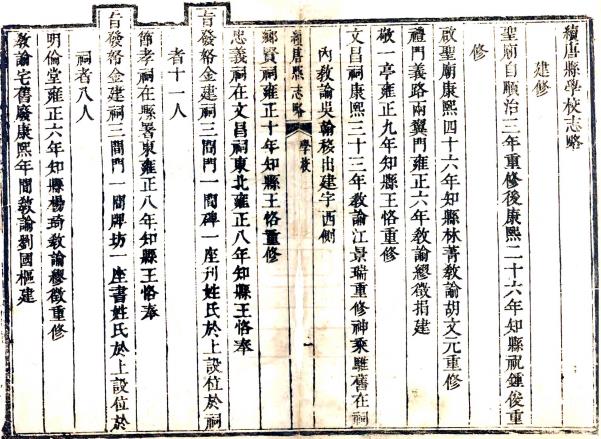 續唐縣學校志略
建修
聖廟自順治三年重修後康熙二十六年知縣祝鍾俊重
修
啟聖廟康熙四十六年知縣林菁教諭胡文元重修
禮門義路兩翼門雍正六年教諭繆徵捐建
敬一亭雍正九年知縣王恪重修
文昌祠康熙三十三年教諭江景瑞重修神乘騅舊在祠
內教諭吳翰移出建字西側
續唐縣志略
學校
一
鄉賢祠雍正十年知縣王恪重修
忠義祠在文昌祠東北雍正八年知縣王恪奉
旨發帑金建祠三間門一間碑一座刋姓氏於上設位於祠
者十一人
節孝祠在縣署東雍正八年知縣王恪奉
旨發帑金建祠三間門一間牌坊一座書姓氏於上設位於
祠者八人
明倫堂雍正六年知縣楊琦教諭繆徵重修
教諭宅舊廢康熙年間教諭劉國樞建